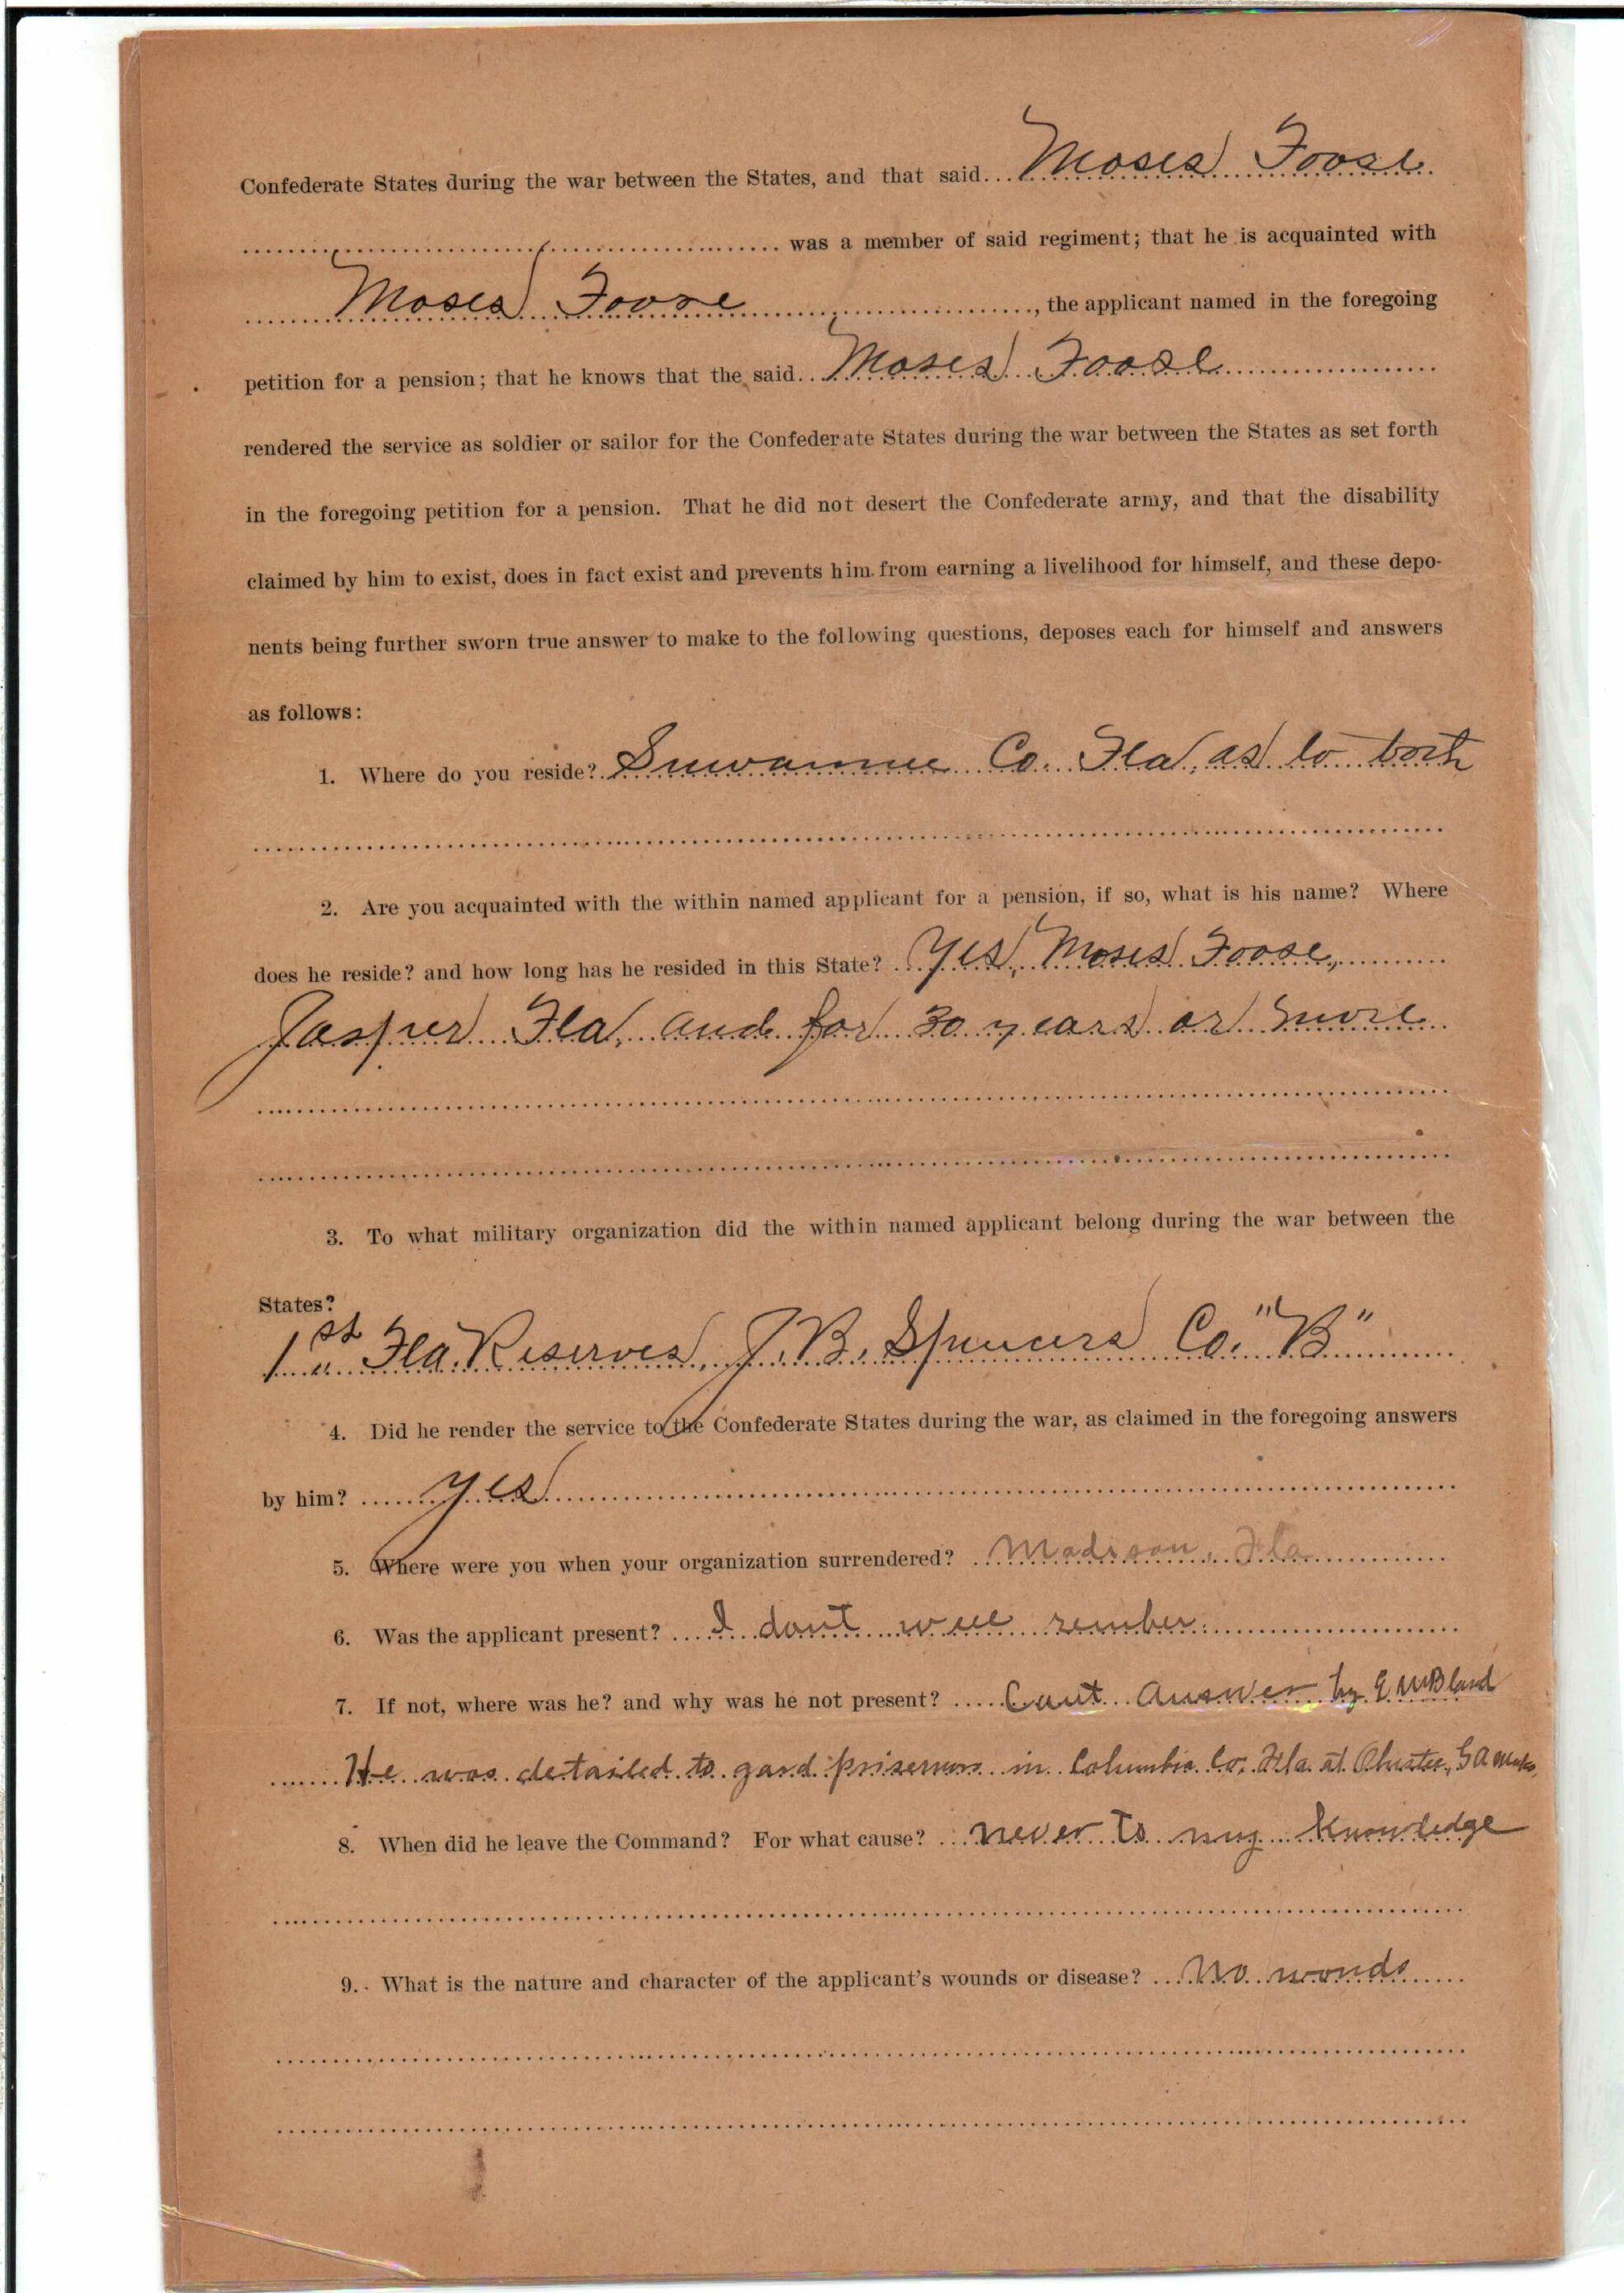 Confederate States during the war between the States, and that said Moses Foose
was a member of said regiment; that he is acquainted with
Moses Foose, the applicant named in the foregoing
petition for a pension; that he knows that the said Moses Foose
rendered the service as soldier or sailor for the Confederate States during the war between the States as set forth
in the foregoing petition for a pension. That he did not desert the Confederate army, and that the disability
claimed by him to exist, does in fact exist and prevents him from earning a livelihood for himself, and these depo-
nents being further sworn true answer to make to the following questions, deposes each for himself and answers
as follows:
1. Where do you reside? Suwannee Co. Fla. as to both
2. Are you acquainted with the within named applicant for a pension, if so, what is his name? Where
does he reside? and how long has he resided in this State? Yes, Moses Foose,
Jasper Fla. and for 30 years or more
3. To what military organization did the within named applicant belong during the war between the
States?
1st Fla. Reserves, J. B. Spencers Co. "B"
4. Did he render the service to the Confederate States during the war, as claimed in the foregoing answers
by him? yes
5. Where were you when your organization surrendered? Madison, Fla
6. Was the applicant present? I dont well rember
7. If not, where was he? and why was he not present? Cant Answer by E W Bland
He was detailed to gard prisernors in Columbia Co, Fla. at Olustee,
8. When did he leave the Command? For what cause? never to my Knowledge
9. What is the nature and character of the applicant's wounds or disease? No wonds